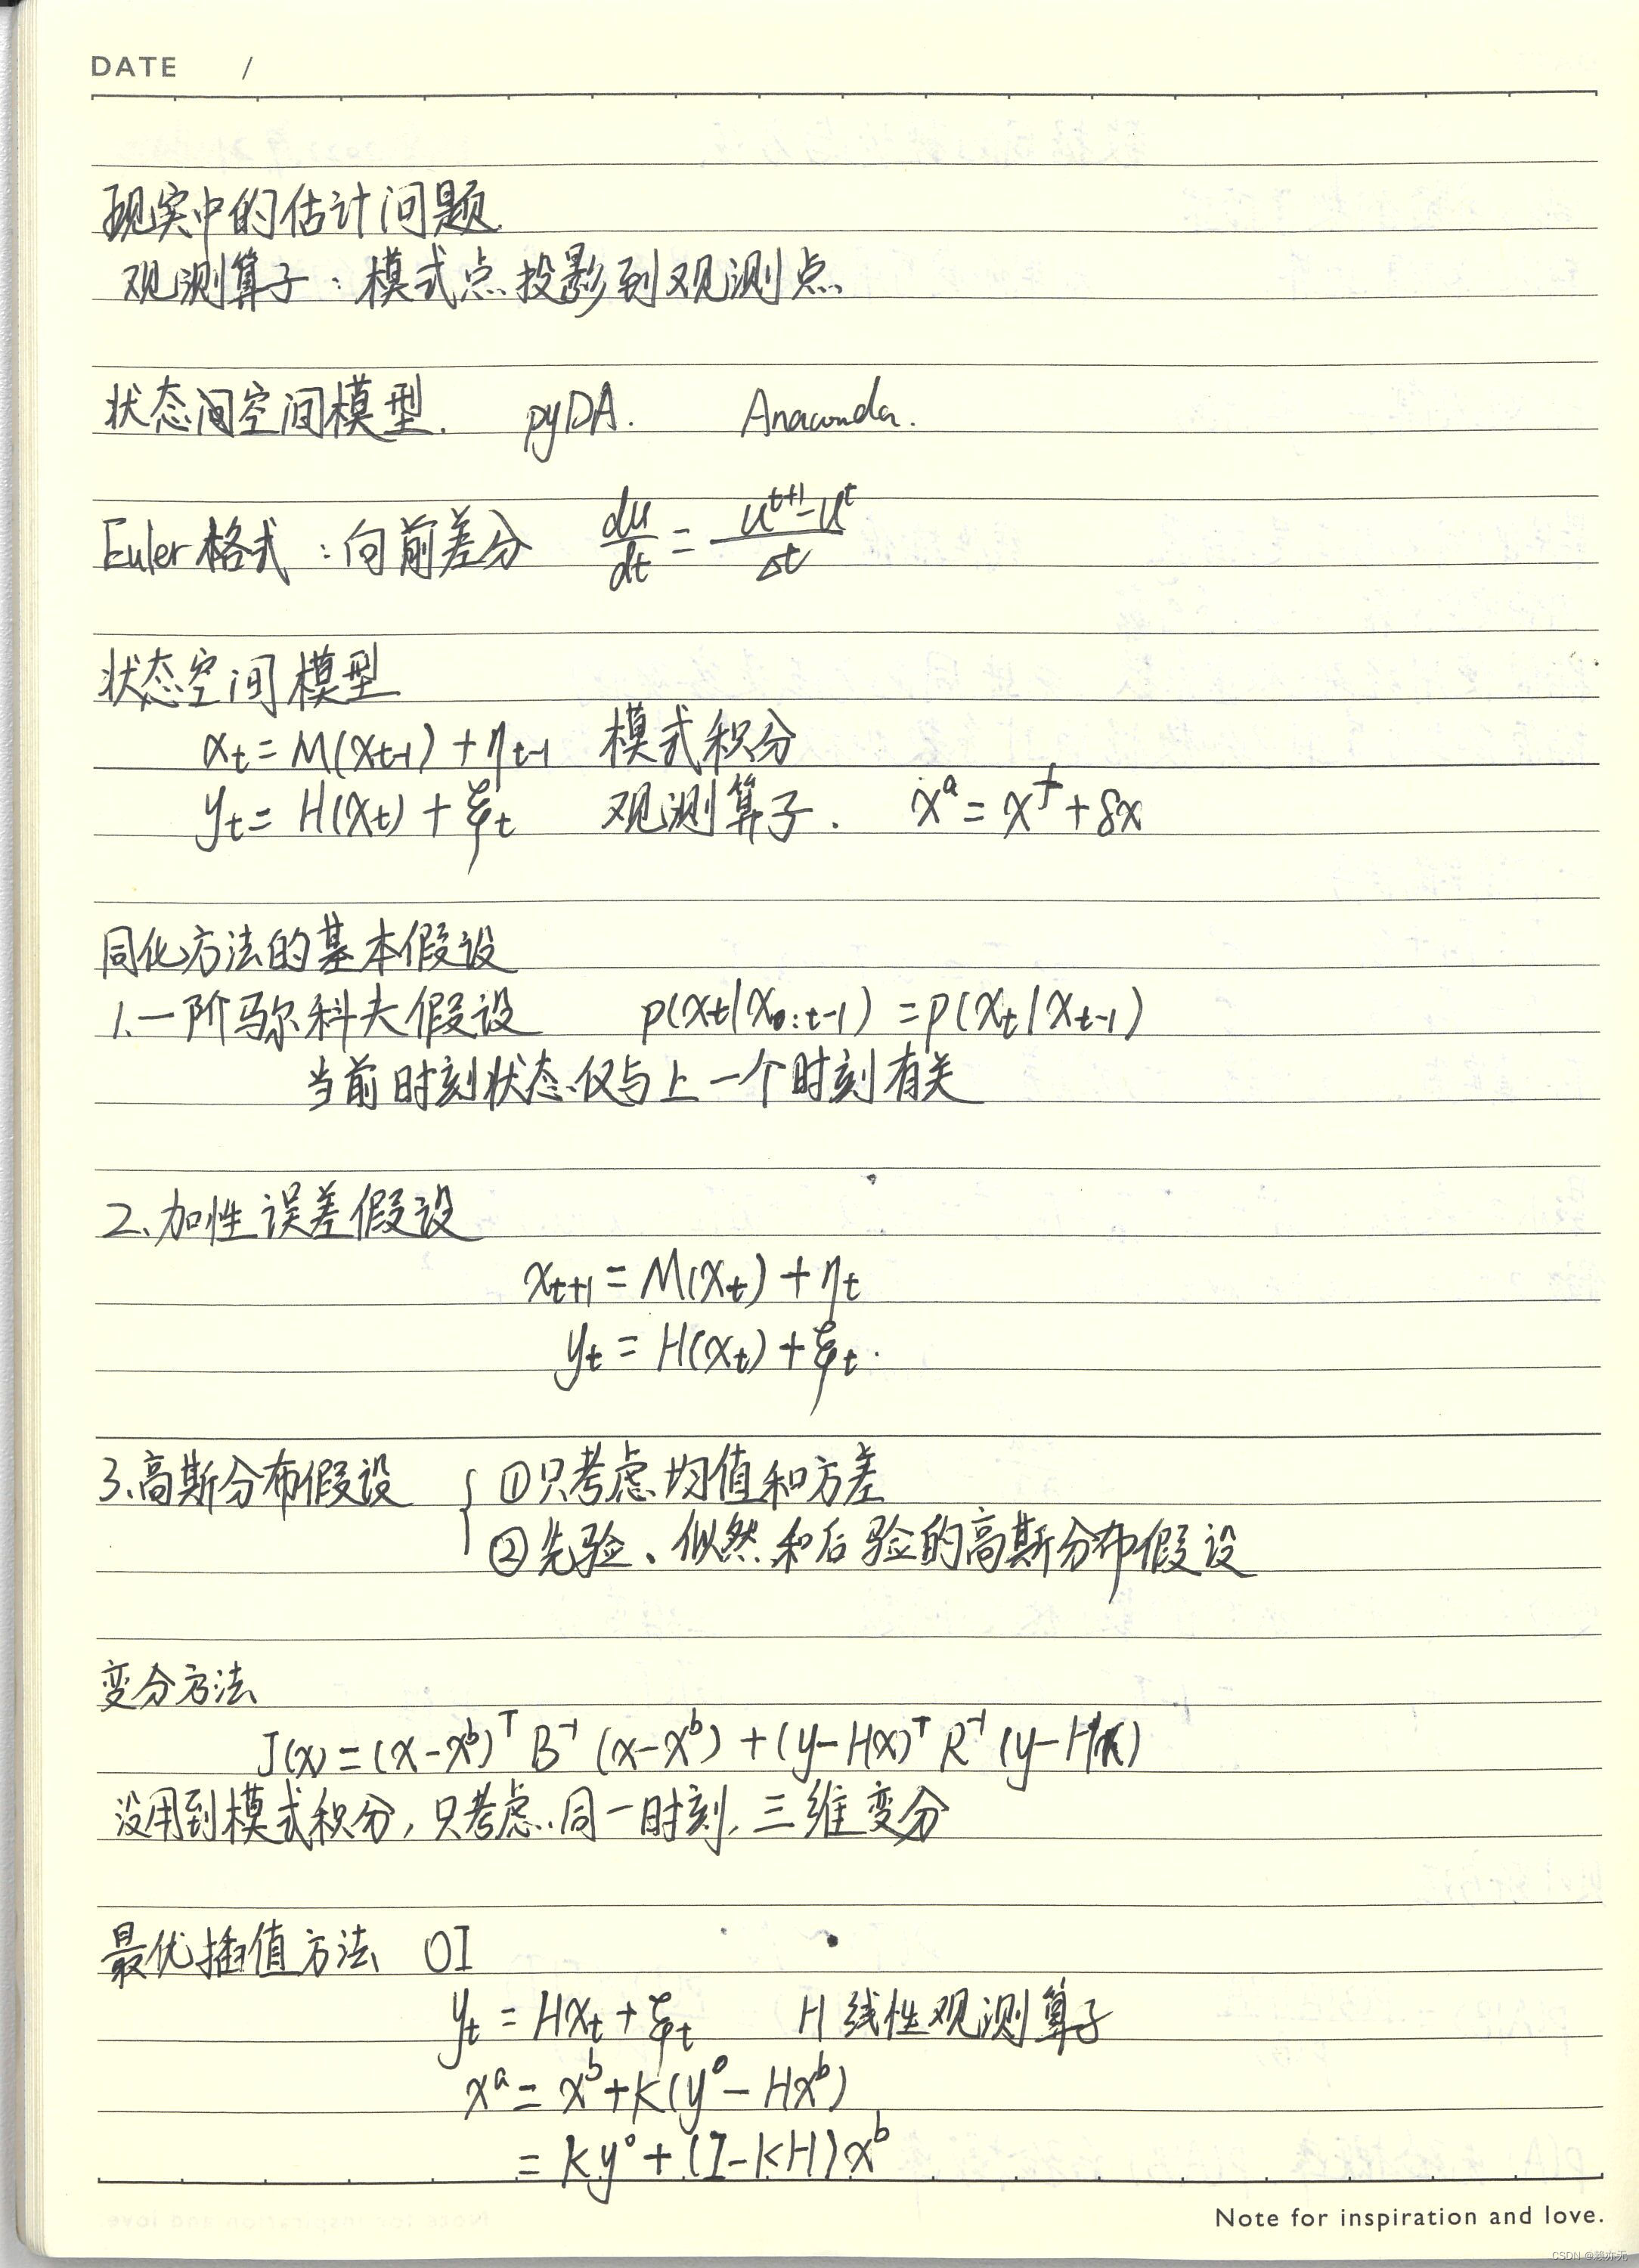 DATE /
现实中的估计问题
观测算子：模式点投影到观测点
状态间空间模型. pyDA. Anaconda.
Euler格式：向前差分 du/dt = (u^{t+1} - u^t)/Δt
状态空间模型
x_t = M(x_{t-1}) + η_{t-1} 模式积分
y_t = H(x_t) + ξ_t 观测算子. x^a = x^f + δx
同化方法的基本假设
1.一阶马尔科夫假设 p(x_t|x_{0:t-1}) = p(x_t|x_{t-1})
当前时刻状态仅与上一个时刻有关
2、加性误差假设
x_{t+1} = M(x_t) + η_t
y_t = H(x_t) + ξ_t.
3.高斯分布假设 { ①只考虑均值和方差
②先验、似然和后验的高斯分布假设
变分方法
J(x) = (x-x^b)^T B^{-1} (x-x^b) + (y-Hx)^T R^{-1} (y-Hx)
没用到模式积分，只考虑同一时刻，三维变分
最优插值方法 OI
y_t = Hx_t + ξ_t H 线性观测算子
x^a = x^b + K(y^o - Hx^b)
= Ky^o + (I-KH)x^b
Note for inspiration and love.